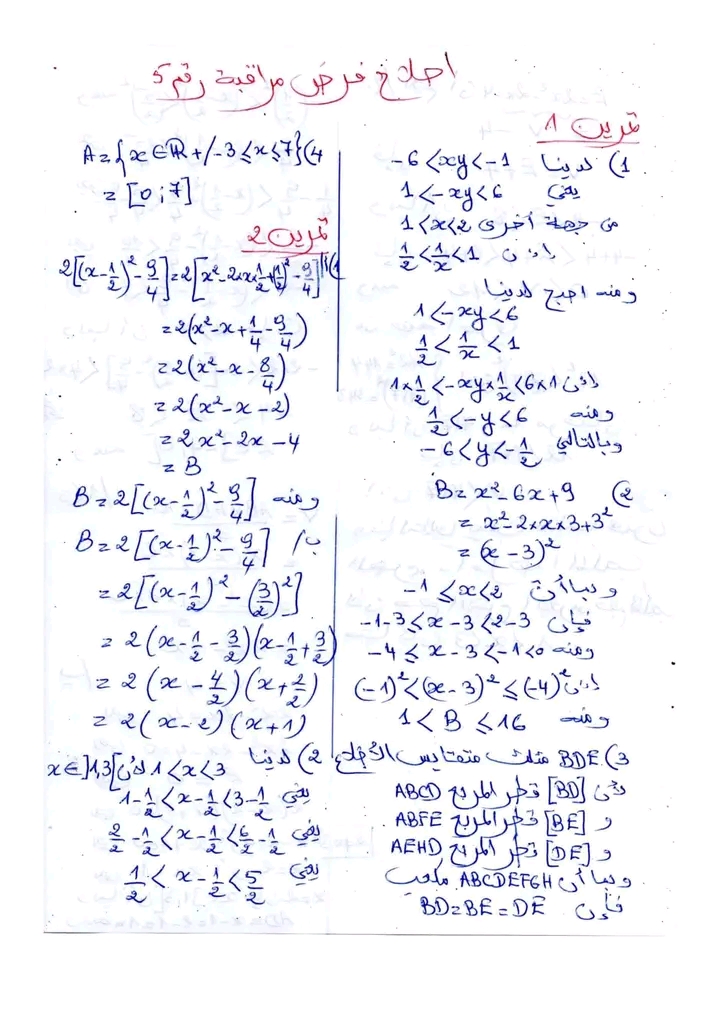 اصلاح فرض مراقبة رقم 5
تمرين 1
1) لدينا -6<xy<-1
يعني 1<-xy<6
من جهة أخرى 1<x<2
إذن 1/2<1/x<1
ومنه اصبح لدينا
1<-xy<6
1/2<1/x<1
إذن 1×1/2<-xy×1/x<6×1
ومنه 1/2<-y<6
وبالتالي -6<y<-1/2
2) B=x²-6x+9
=x²-2×x×3+3²
=(x-3)²
وبما أن -1≤x<2
فإن -1-3≤x-3<2-3
ومنه -4≤x-3<-1<0
إذن (-1)²<(x-3)²≤(-4)²
ومنه 1<B≤16
3) BDE مثلث متقايس الأضلاع
لأن [BD] قطر المربع ABCD
و [BE] قطر المربع ABFE
و [DE] قطر المربع AEHD
وبما أن ABCDEFGH مكعب
فإن BD=BE=DE
4) A={x∈IR+/-3≤x≤7}
=[0;7]
تمرين 2
1) أ/ 2[(x-1/2)²-9/4]=2[x²-2×x×1/2+(1/2)²-9/4]
=2(x²-x+1/4-9/4)
=2(x²-x-8/4)
=2(x²-x-2)
=2x²-2x-4
=B
ومنه B=2[(x-1/2)²-9/4]
ب/ B=2[(x-1/2)²-9/4]
=2[(x-1/2)²-(3/2)²]
=2(x-1/2-3/2)(x-1/2+3/2)
=2(x-4/2)(x+2/2)
=2(x-2)(x+1)
2) لدينا 1<x<3 لأن x∈]1,3[
يعني 1-1/2<x-1/2<3-1/2
يعني 2/2-1/2<x-1/2<6/2-1/2
يعني 1/2<x-1/2<5/2